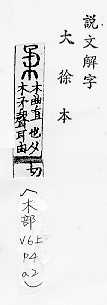 説文解字
大徐本
柔 木曲直也从
木矛聲耳由
切
(木部
V6上
P4
a2)